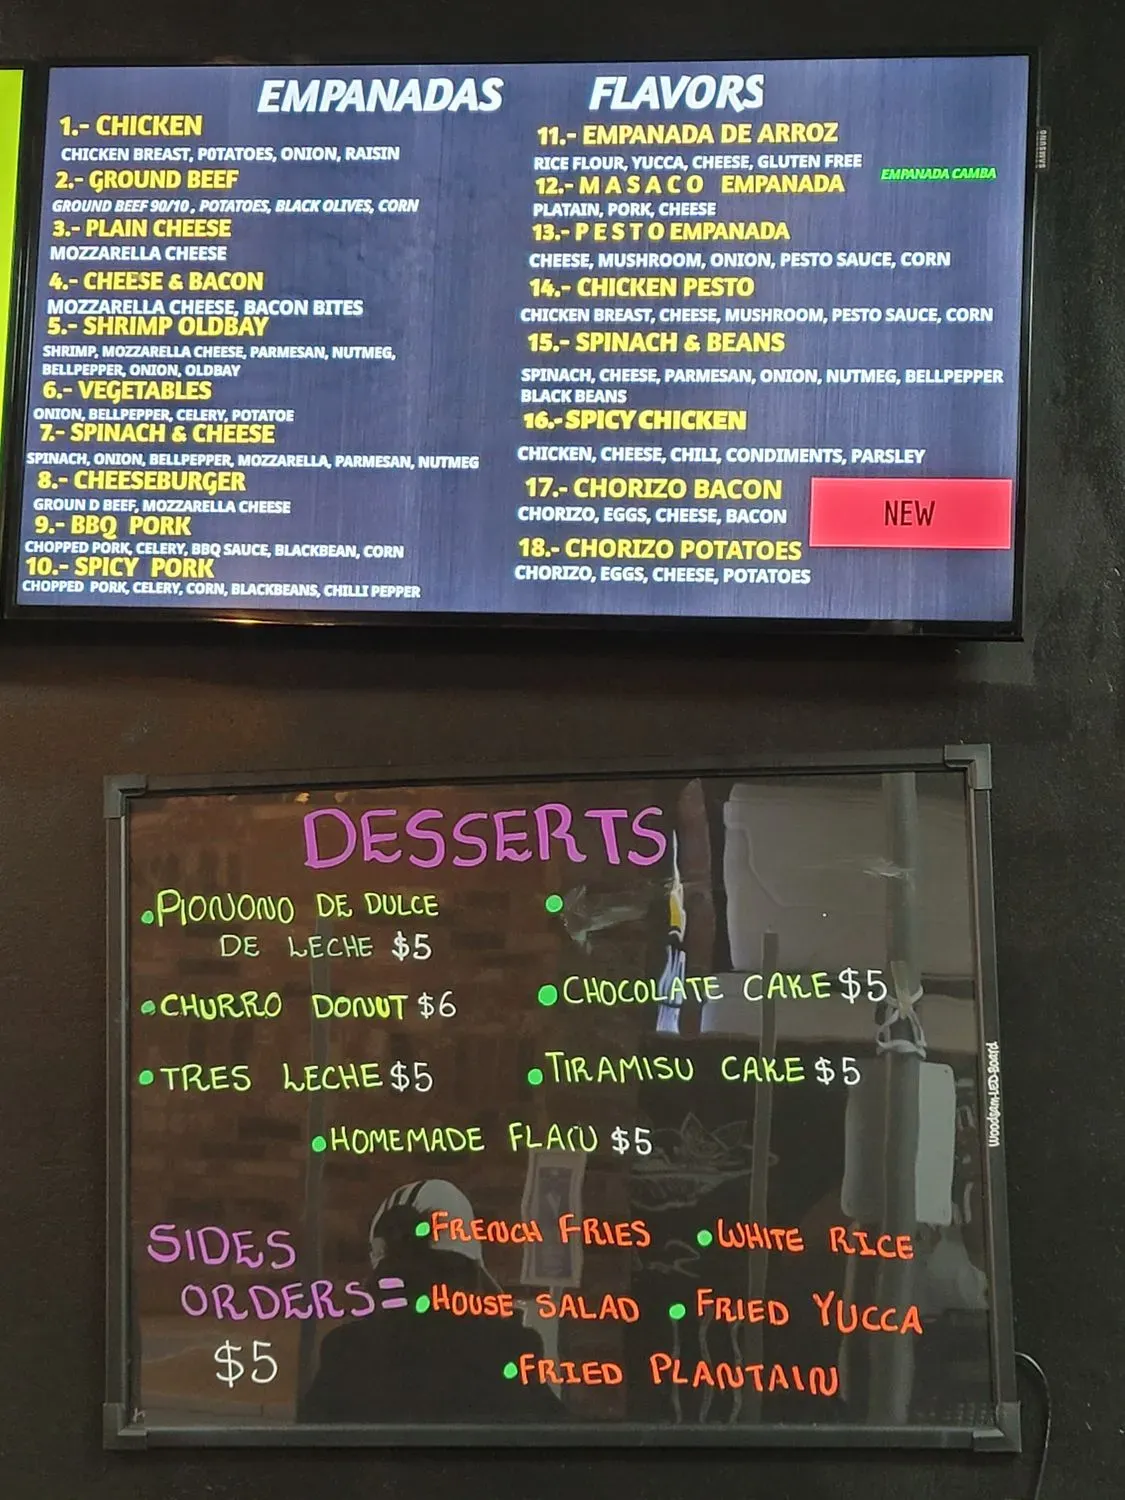 EMPANADAS FLAVORS
1.- CHICKEN
CHICKEN BREAST, POTATOES, ONION, RAISIN
2.- GROUND BEEF
GROUND BEEF 90/10 , POTATOES, BLACK OLIVES, CORN
3.- PLAIN CHEESE
MOZZARELLA CHEESE
4.- CHEESE & BACON
MOZZARELLA CHEESE, BACON BITES
5.- SHRIMP OLDBAY
SHRIMP, MOZZARELLA CHEESE, PARMESAN, NUTMEG,
BELLPEPPER, ONION, OLDBAY
6.- VEGETABLES
ONION, BELLPEPPER, CELERY, POTATOE
7.- SPINACH & CHEESE
SPINACH, ONION, BELLPEPPER, MOZZARELLA, PARMESAN, NUTMEG
8.- CHEESEBURGER
GROUN D BEEF, MOZZARELLA CHEESE
9.- BBQ PORK
CHOPPED PORK, CELERY, BBQ SAUCE, BLACKBEAN, CORN
10.- SPICY PORK
CHOPPED PORK, CELERY, CORN, BLACKBEANS, CHILLI PEPPER
11.- EMPANADA DE ARROZ
RICE FLOUR, YUCCA, CHEESE, GLUTEN FREE
EMPANADA CAMBA
12.- M A S A C O EMPANADA
PLATAIN, PORK, CHEESE
13.- P E S T O EMPANADA
CHEESE, MUSHROOM, ONION, PESTO SAUCE, CORN
14.- CHICKEN PESTO
CHICKEN BREAST, CHEESE, MUSHROOM, PESTO SAUCE, CORN
15.- SPINACH & BEANS
SPINACH, CHEESE, PARMESAN, ONION, NUTMEG, BELLPEPPER
BLACK BEANS
16.- SPICY CHICKEN
CHICKEN, CHEESE, CHILI, CONDIMENTS, PARSLEY
17.- CHORIZO BACON
CHORIZO, EGGS, CHEESE, BACON
NEW
18.- CHORIZO POTATOES
CHORIZO, EGGS, CHEESE, POTATOES
SAMSUNG
DESSERTS
•PIONONO DE DULCE
DE LECHE $5
•CHURRO DONUT $6
•TRES LECHE $5
•
•CHOCOLATE CAKE $5
•TIRAMISU CAKE $5
•HOMEMADE FLAN $5
SIDES
ORDERS=
$5
•FRENCH FRIES •WHITE RICE
•HOUSE SALAD •FRIED YUCCA
•FRIED PLANTAIN
Woodsam-LED-Board